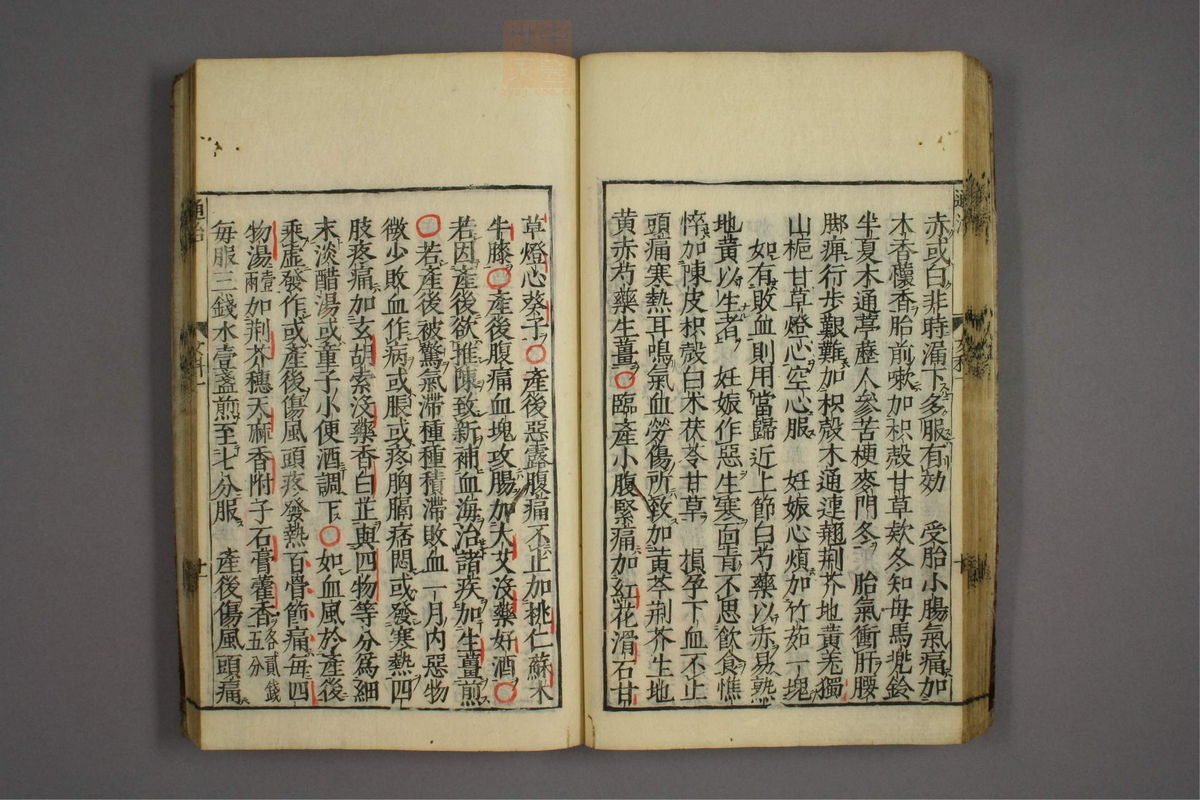 赤或白非時漏下多服有効　受胎小腸氣痛加
木香茴香胎前嗽加枳殼甘草欸冬知母馬兠鈴
半夏木通葶藶人參苦梗麥門冬　胎氣衝肝腰
脚痺行步艱難加枳殼木通連翹荆芥地黃羌獨
山梔甘草燈心空心服　妊娠心煩加竹茹一塊
如有敗血則用當歸近上節白芍藥以赤易熟
地黃以生者　妊娠作惡生寒面青不思飲食憔
悴加陳皮枳殼白朮茯苓甘草　損孕下血不止
頭痛寒熱耳鳴氣血勞傷所致加黃芩荆芥生地
黃赤芍藥生薑○臨產小腹緊痛加紅花滑石甘
草燈心葵子○產後惡露腹痛不止加桃仁蘇木
牛膝○產後腹痛血塊攻腸加大艾没藥好酒○
若因產後欲推陳致新補血海治諸疾加生薑煎
○若產後被驚氣滯種種積滯敗血一月內惡物
微少敗血作病或脹或疼胸膈痞悶或發寒熱四
肢疼痛加玄胡索没藥香白芷與四物等分爲細
末淡醋湯或童子小便酒調下○如血風於產後
乘虛發作或產後傷風頭疼發熱百骨節痛每四
物湯壹兩加荆芥穗天麻香附子石膏藿香各貳錢五分
每服三錢水壹盞煎至七分服　產後傷風頭痛
通治
十一